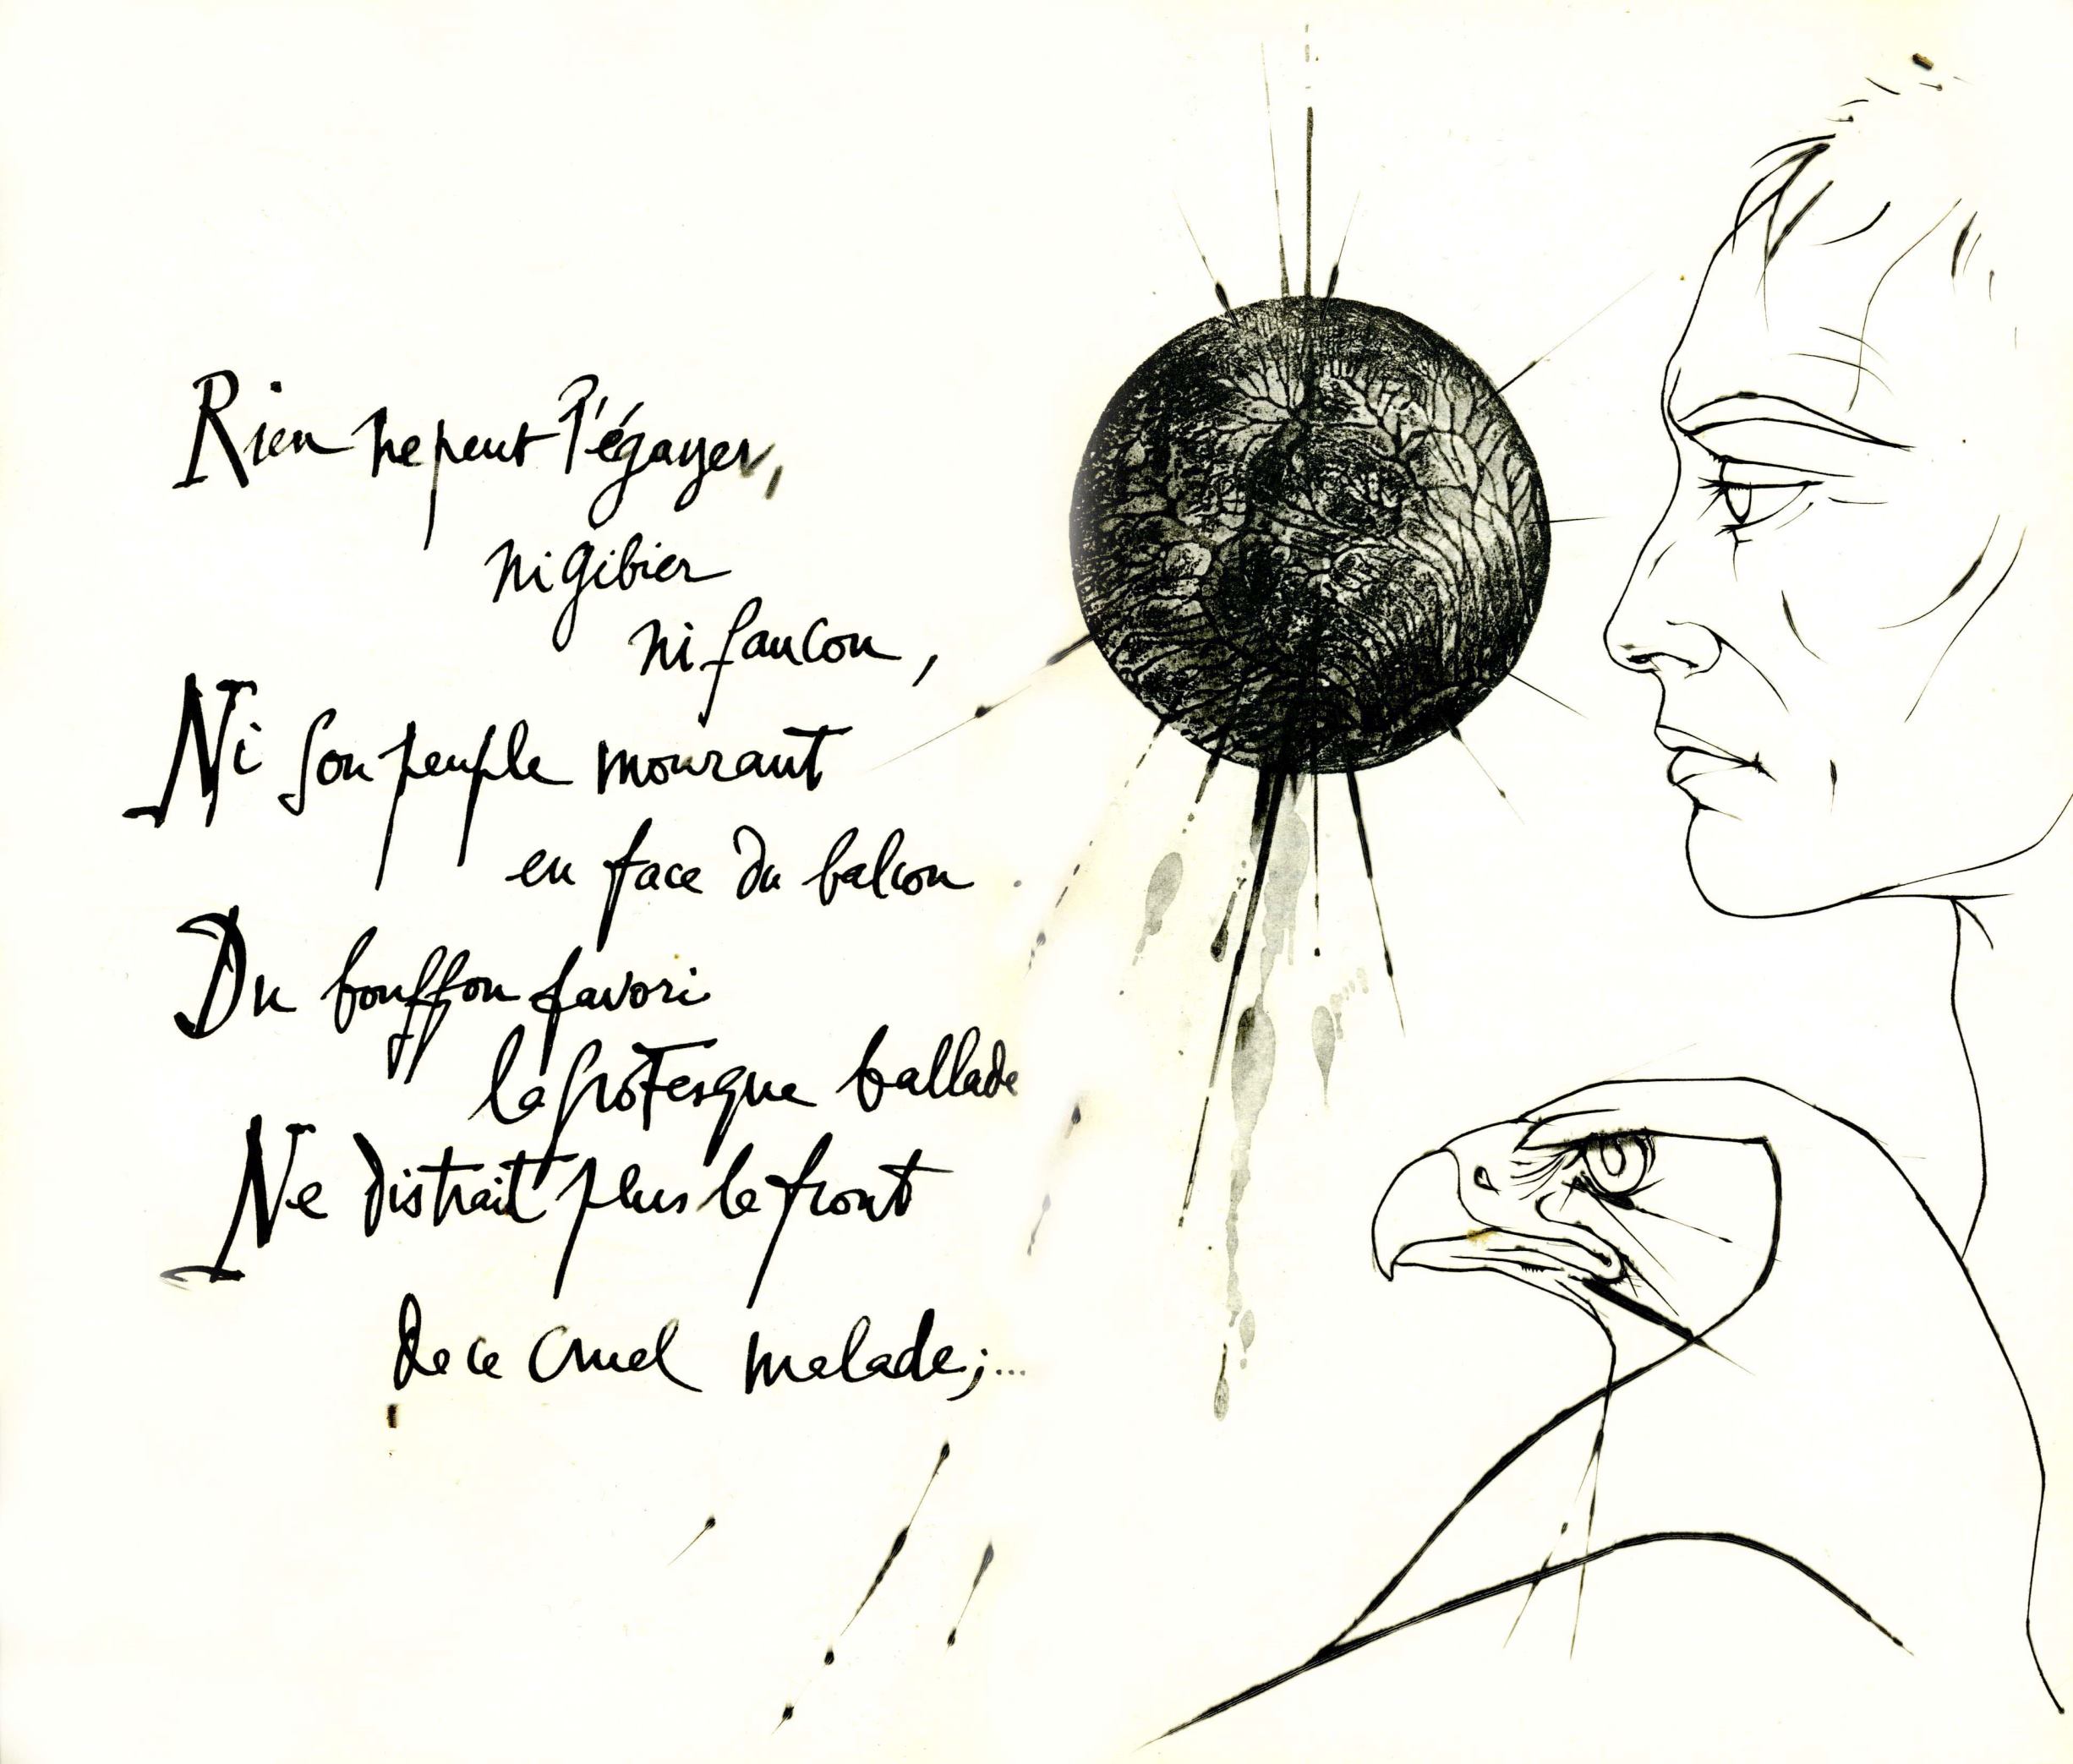 Rien ne peut l'égayer,
ni gibier
ni faucon,
Ni son peuple mourant
en face du balcon
Du bouffon favori
la grotesque ballade
Ne distrait plus le front
De ce cruel malade;...